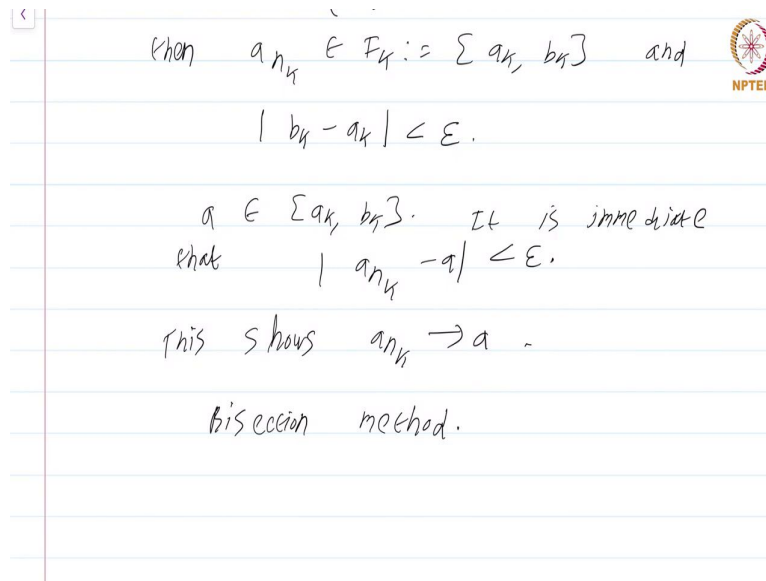 then a_{n_k} ∈ F_k := [a_k, b_k] and
NPTEL
| b_k - a_k | < ε.
a ∈ [a_k, b_k]. It is immediate
that | a_{n_k} - a | < ε.
This shows a_{n_k} → a.
Bisection method.